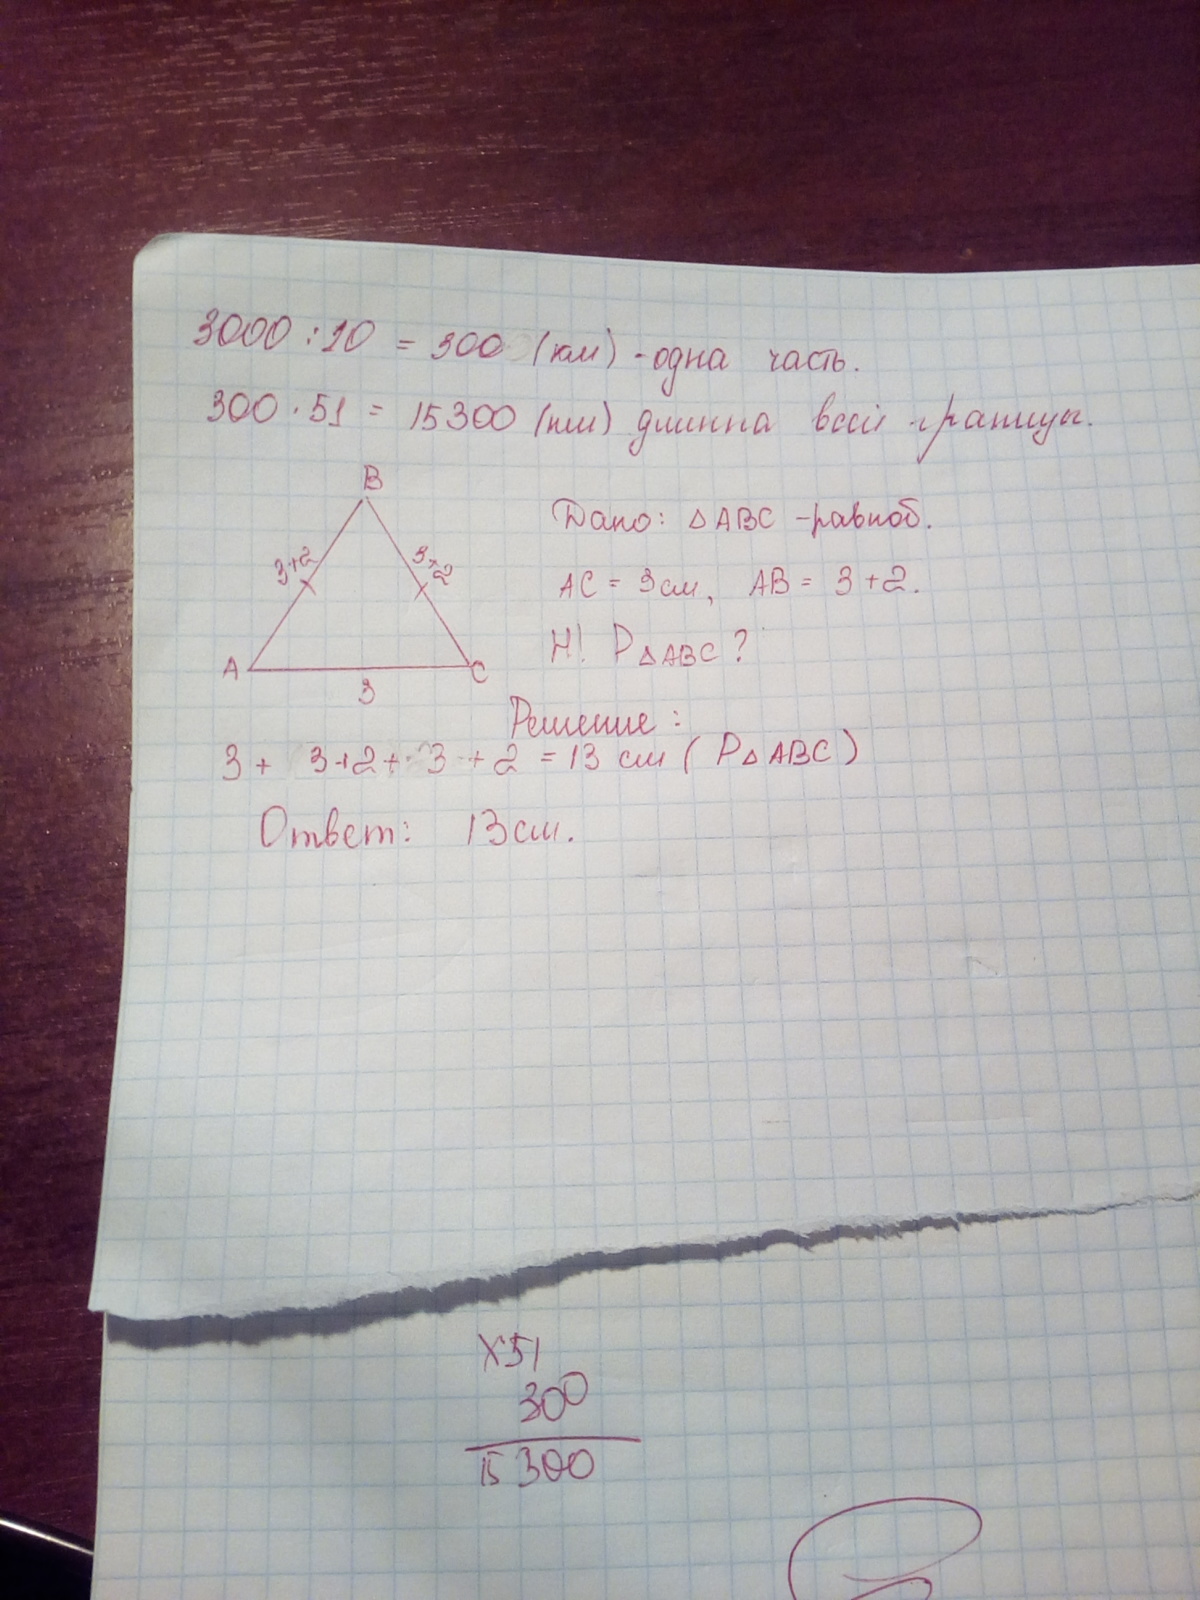 3000 : 10 = 300 (км) - одна часть.
300 · 51 = 15300 (км) длинна всей границы.
B
3+2
3+2
A
C
3
Дано: △ABC - равноб.
AC = 3см, AB = 3+2.
Н! P△ABC ?
Решение:
3 + 3+2 + 3 + 2 = 13 см (P△ABC)
Ответ: 13см.
×51
300
15300